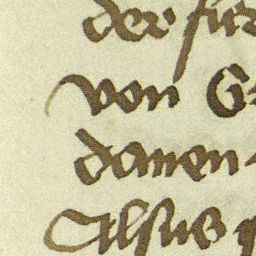 der für
von G
danen
Alsus